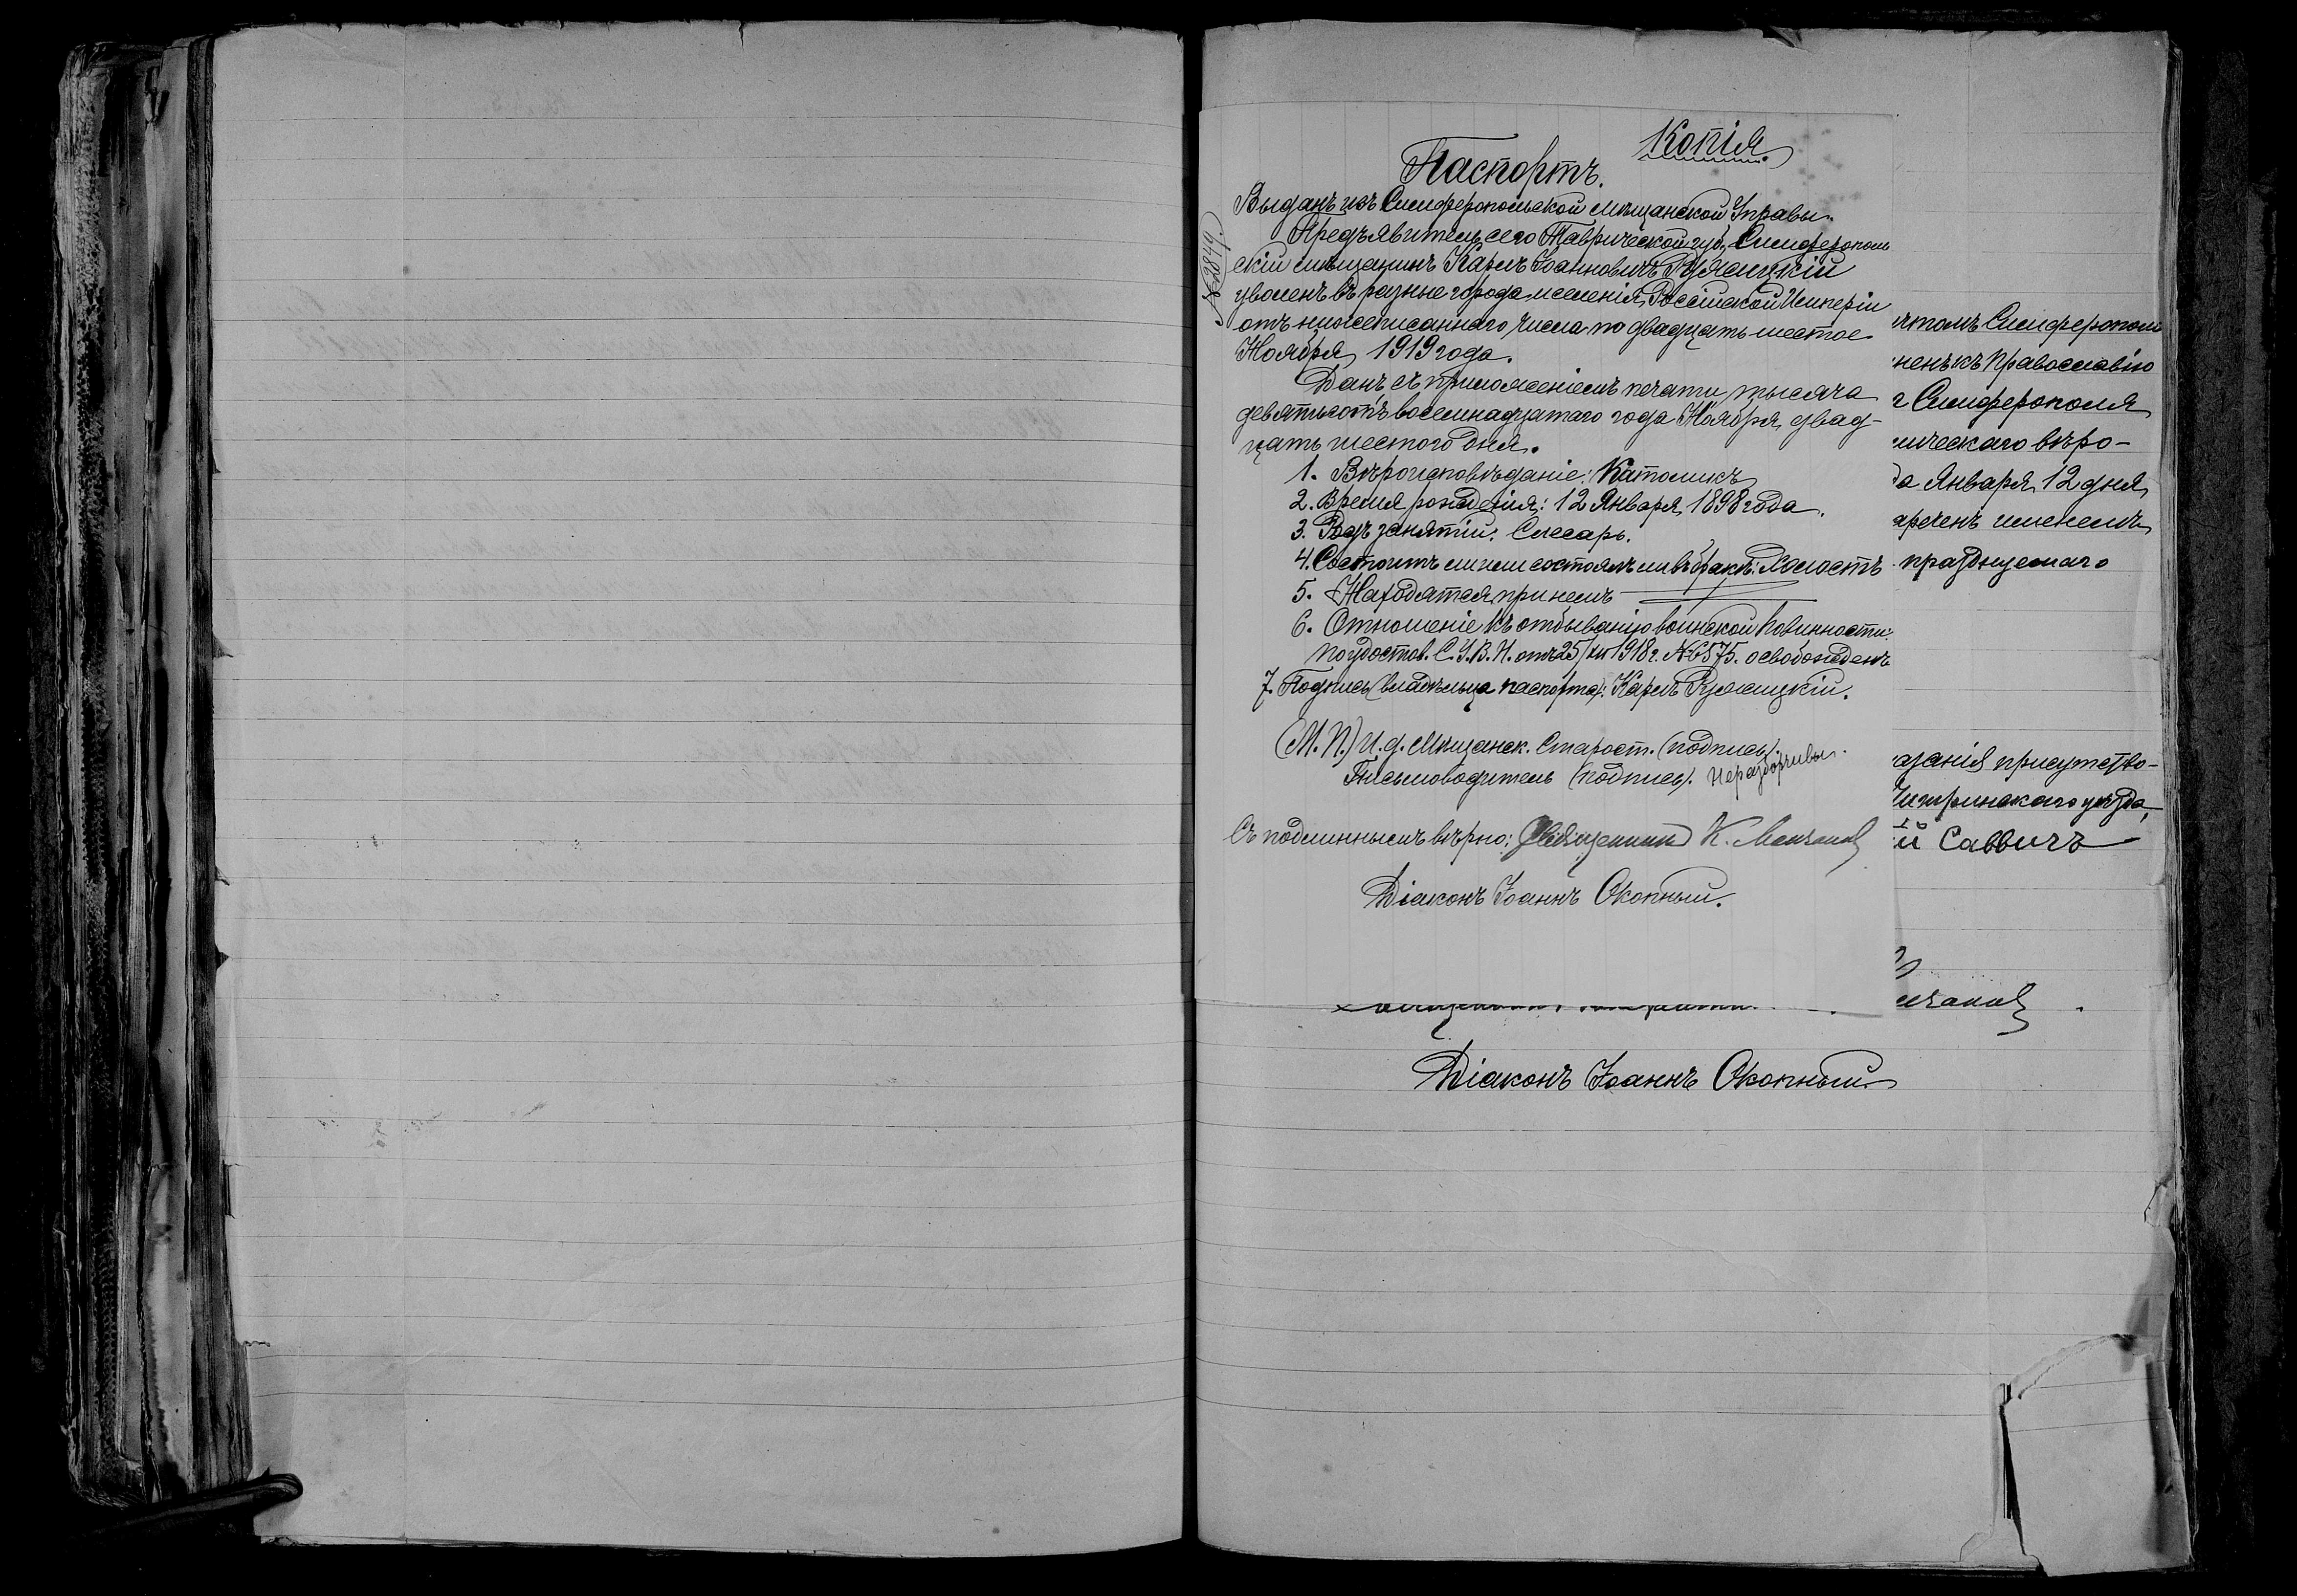 Копія
Паспортъ.
№ 2849.
Выданъ изъ Симферопольской мѣщанской Управы.
Предъявитель сего Таврической губ. Симферополь
скій мѣщанинъ Карлъ Іоанновичъ
уволенъ въ разные города и селенія Россійской Имперіи
отъ нижеписаннаго числа по двадцать шестое
Ноября 1919 года.
Данъ съ приложеніемъ печати тысяча
девятьсотъ восемнадцатаго года Ноября двад-
цать шестого дня.
1. Вѣроисповѣданіе: Католикъ
2. Время рожденія: 12 Января 1898 года.
3. Родъ занятій: Слесарь.
4. Состоитъ ли или состоялъ ли въ бракѣ: Холостъ
5. Находятся при немъ
6. Отношеніе къ отбыванію воинской повинности:
по удостов. С.У.В.Н. отъ 25/XI 1918 г. № 6575. освобожденъ
7. Подпись (владѣльца паспорта): Карлъ
(М.П.) И.д. Мѣщанск. Старост. (подпись).
Письмоводитель (подпись). Неразборчивы.
Съ подлиннымъ вѣрно: Священникъ К.
Діаконъ Іоаннъ Окопный.
Симферополь
къ Православію
Симферополя
вѣро-
Января 12 дня
именемъ
празднуемаго
присутство-
уѣзда,
Саввичъ
Діаконъ Іоаннъ Окопный